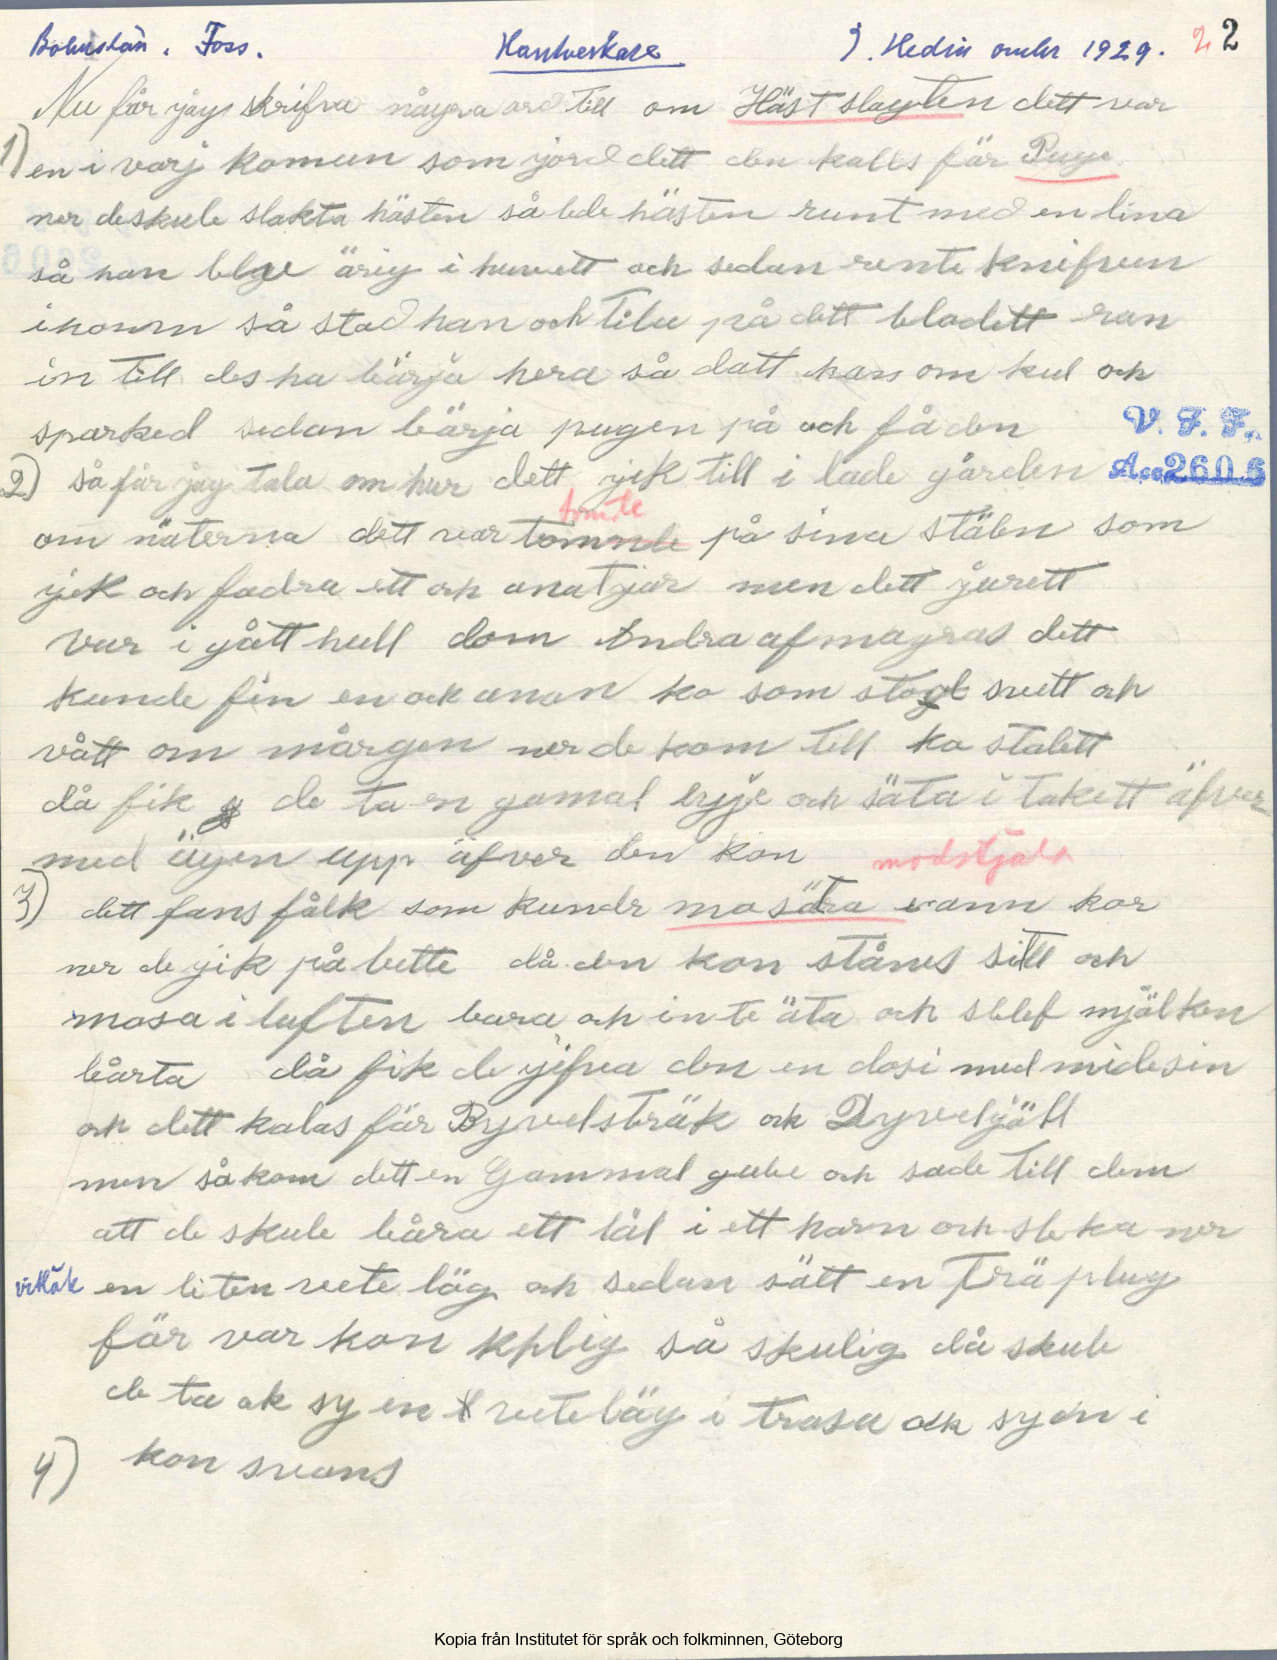 Bohuslän. Foss. Hantverkare J. Hedin omkr 1929. 2 2
Nu får jag skrifva några ord till om Häst slagten dett var
1) en i varj komun som jord dett den kalls får Puge
ner de skule slakta hästen så lede hästen runt med en lina
så han blge ärig i huvett och sedan rente knifven
i honm så stod han och tilu på dett blodett ran
in till des ha bärja hera så datt han om kul och
sparked sedan bärja pugen på och få den
V. F. F.
Acc 2606
2) så får jag tala om hur dett jik till i lade gården
tomte
om näterna dett var tomnte på sina ställn som
jik och fodra ett och anat jur men dett jurett
var i gått hull dom Andra afmagras dett
kunde fin en och anan ko som stod svett och
vått om mårgen ner de kom till ko stalett
då fik de ta en gamal lyje och säta i takett äfver
med ägen upp äfver den kon
modstjäla
3) dett fans fålk som kunde mosätra vann kor
ner de jik på bette då den kon stånes still och
mosa i luften bara och inte äta och sblef mjälken
bårta då fik de jifva den en dosi med midesin
och dett kalas får Dyvelsträk och Dyveljäll
men så kom dett en Gammal gube och sade till dem
att de skule båra ett lål i ett harn och steka ner
vitlök en liten vete läg och sedan sätt en trä plug
får var kon kplig så skulig då skule
de ta ok sy en vete läg i trasa ock sy den i
4) kon svans
Kopia från Institutet för språk och folkminnen, Göteborg